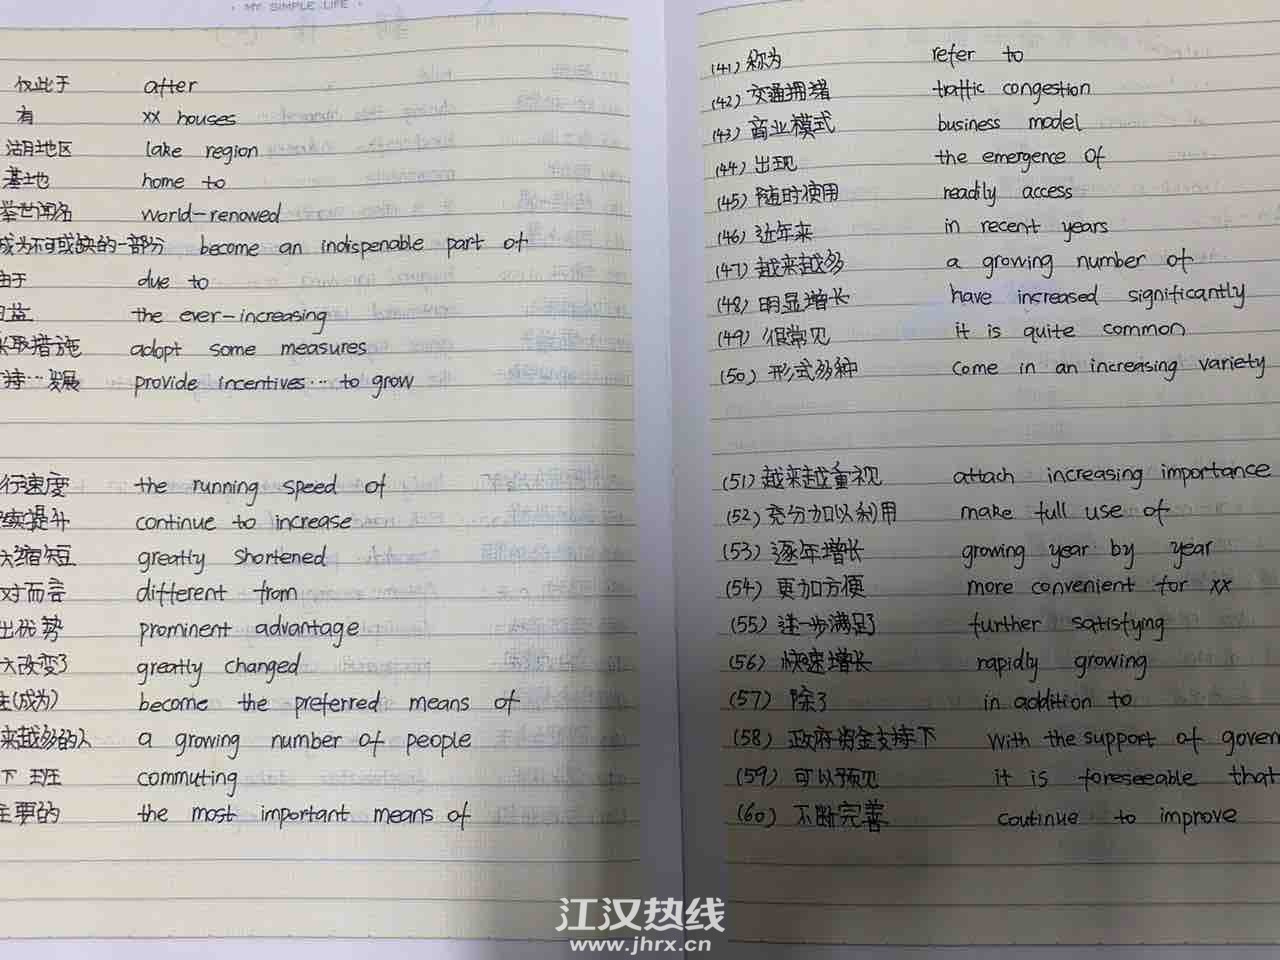 · MY SIMPLE LIFE ·
仅此于 after
有 xx houses
湖地区 lake region
基地 home to
举世闻名 world-renowed
成为不可或缺的一部分 become an indispenable part of
由于 due to
日益 the ever-increasing
采取措施 adopt some measures
持…发展 provide incentives… to grow
行速度 the running speed of
续提升 continue to increase
大缩短 greatly shortened
对而言 different from
出优势 prominent advantage
大改变了 greatly changed
(成为) become the preferred means of
来越多的人 a growing number of people
下班 commuting
主要的 the most important means of
(41) 称为 refer to
(42) 交通拥堵 traffic congestion
(43) 商业模式 business model
(44) 出现 the emergence of
(45) 随时使用 readily access
(46) 近年来 in recent years
(47) 越来越多 a growing number of
(48) 明显增长 have increased significantly
(49) 很常见 it is quite common
(50) 形式多种 come in an increasing variety
(51) 越来越重视 attach increasing importance
(52) 充分加以利用 make full use of
(53) 逐年增长 growing year by year
(54) 更加方便 more convenient for xx
(55) 进一步满足了 further satisfying
(56) 快速增长 rapidly growing
(57) 除了 in addition to
(58) 政府资金支持下 with the support of govern
(59) 可以预见 it is foreseeable that
(60) 不断完善 coutinue to improve
江汉热线
www.jhrx.cn